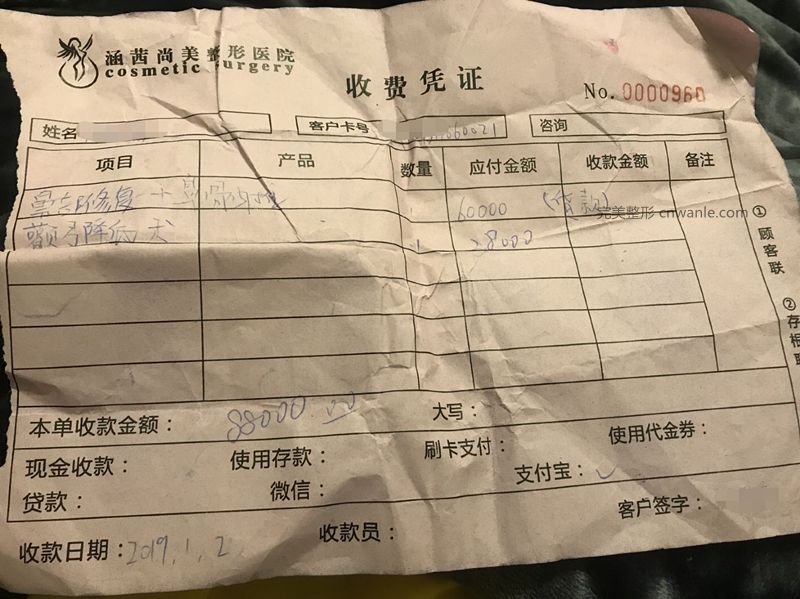 涵茜尚美整形医院
cosmetic surgery
收费凭证
No. 0000960
姓名
客户卡号 60021
咨询
项目 产品 数量 应付金额 收款金额 备注
修复 + 60000 (贷款)
完美整形 cnwanle.com
颧弓降低 8000
①顾客联
②存根联
本单收款金额： 88000.00 大写：
现金收款： 使用存款： 刷卡支付： 使用代金券：
贷款： 微信： 支付宝：
收款日期：2019.1.2 收款员： 客户签字：